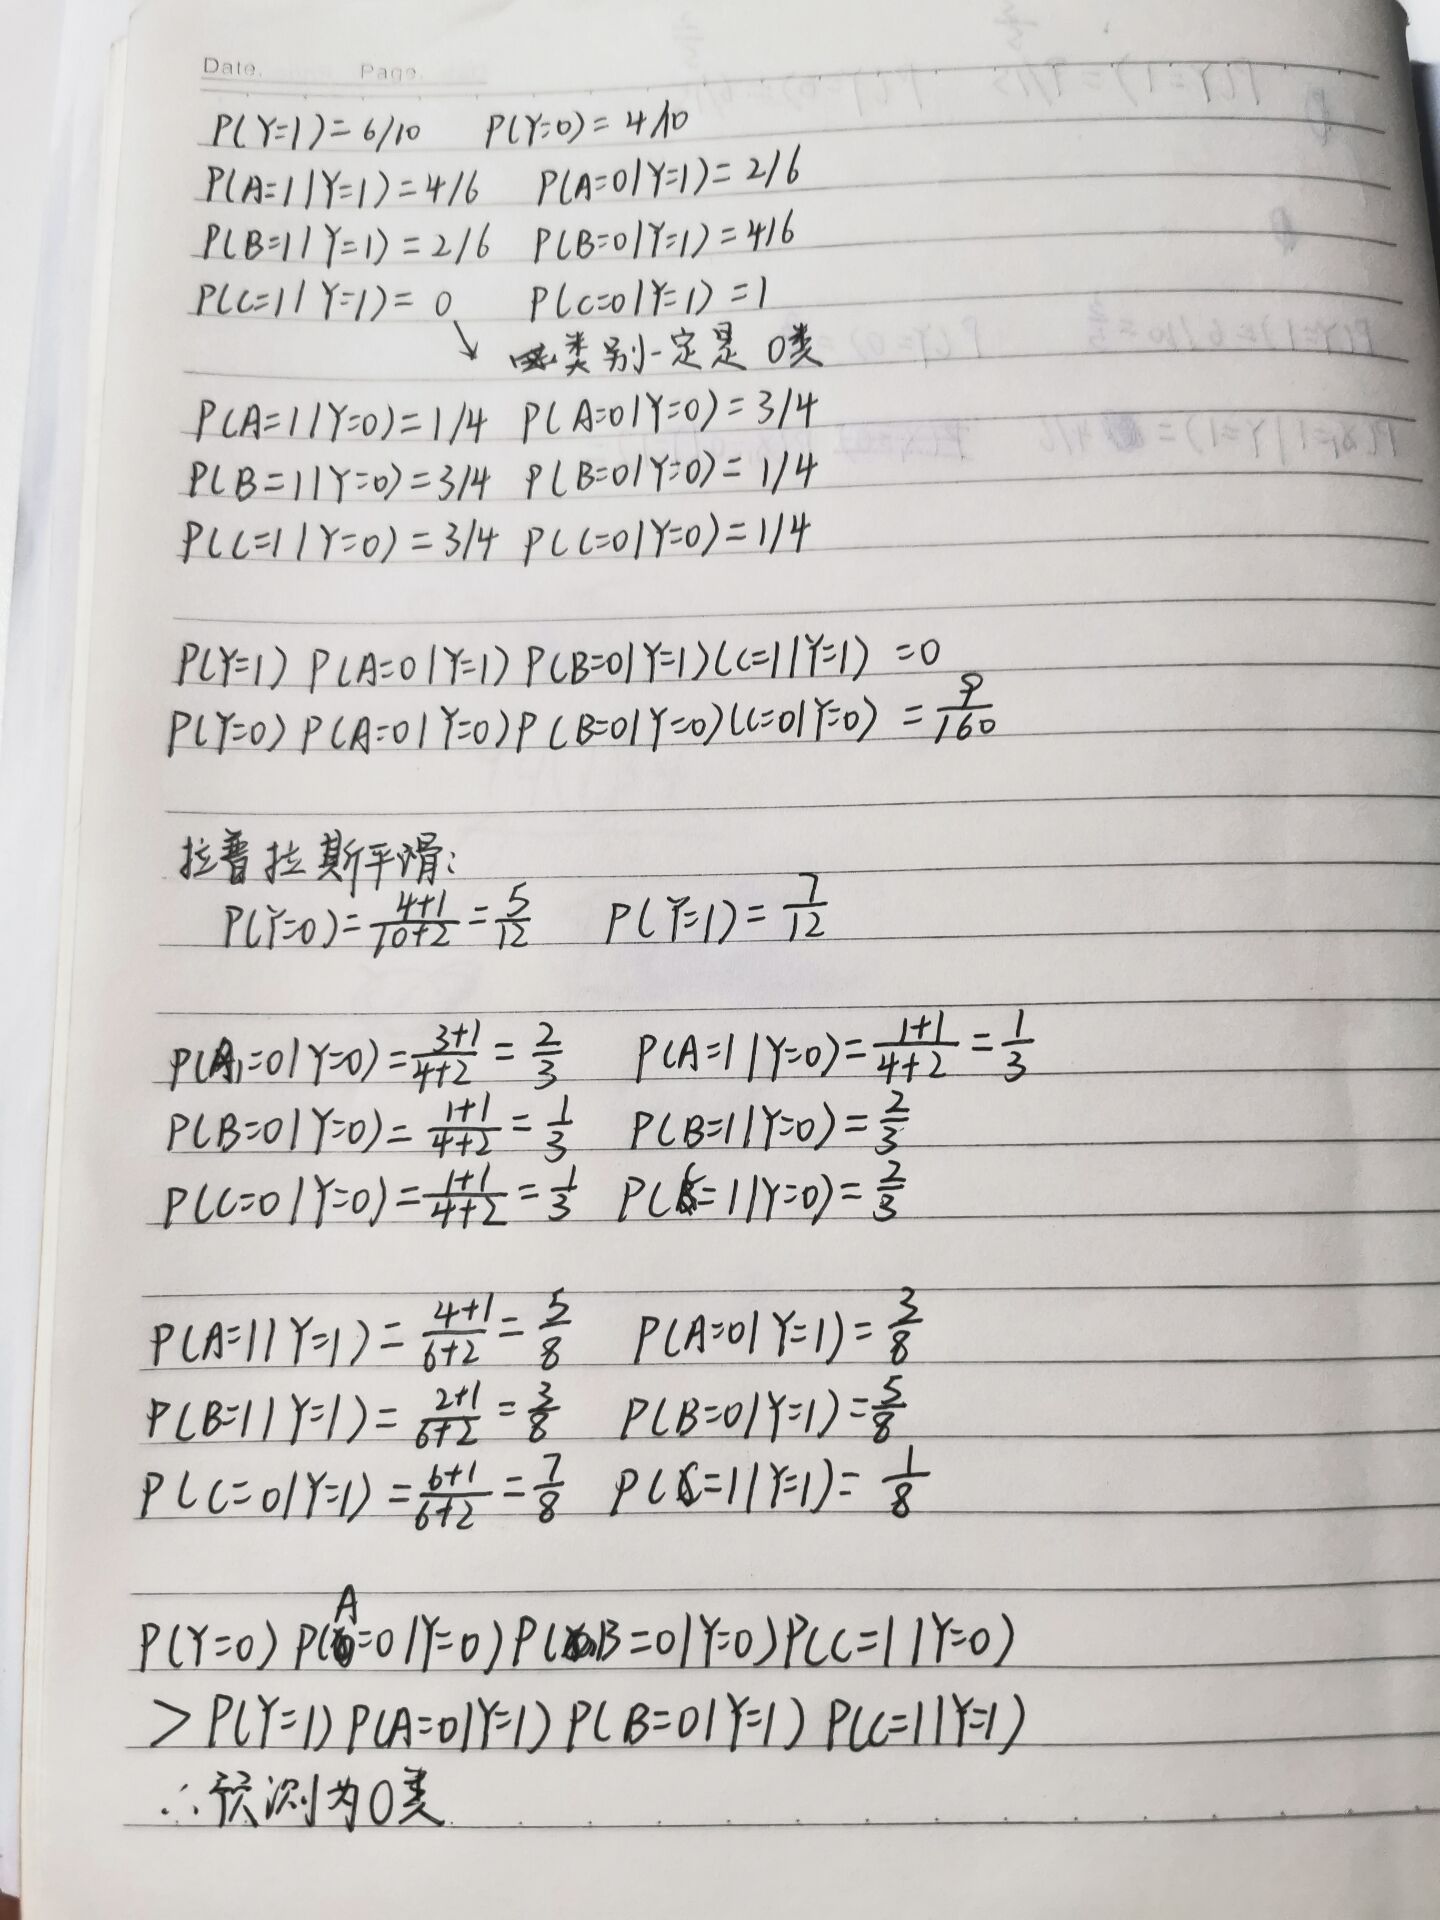 Date. Page.
P(Y=1)=6/10 P(Y=0)=4/10
P(A=1|Y=1)=4/6 P(A=0|Y=1)=2/6
P(B=1|Y=1)=2/6 P(B=0|Y=1)=4/6
P(C=1|Y=1)=0 P(C=0|Y=1)=1
↘ 类别一定是 0类
P(A=1|Y=0)=1/4 P(A=0|Y=0)=3/4
P(B=1|Y=0)=3/4 P(B=0|Y=0)=1/4
P(C=1|Y=0)=3/4 P(C=0|Y=0)=1/4
P(Y=1) P(A=0|Y=1) P(B=0|Y=1)(C=1|Y=1) =0
P(Y=0) P(A=0|Y=0) P(B=0|Y=0)(C=0|Y=0) =9/160
拉普拉斯平滑:
P(Y=0)=(4+1)/(10+2)=5/12 P(Y=1)=7/12
P(A=0|Y=0)=(3+1)/(4+2)=2/3 P(A=1|Y=0)=(1+1)/(4+2)=1/3
P(B=0|Y=0)=(1+1)/(4+2)=1/3 P(B=1|Y=0)=2/3
P(C=0|Y=0)=(1+1)/(4+2)=1/3 P(C=1|Y=0)=2/3
P(A=1|Y=1)=(4+1)/(6+2)=5/8 P(A=0|Y=1)=3/8
P(B=1|Y=1)=(2+1)/(6+2)=3/8 P(B=0|Y=1)=5/8
P(C=0|Y=1)=(6+1)/(6+2)=7/8 P(C=1|Y=1)=1/8
P(Y=0) P(A=0|Y=0) P(B=0|Y=0) P(C=1|Y=0)
> P(Y=1) P(A=0|Y=1) P(B=0|Y=1) P(C=1|Y=1)
∴预测为0类